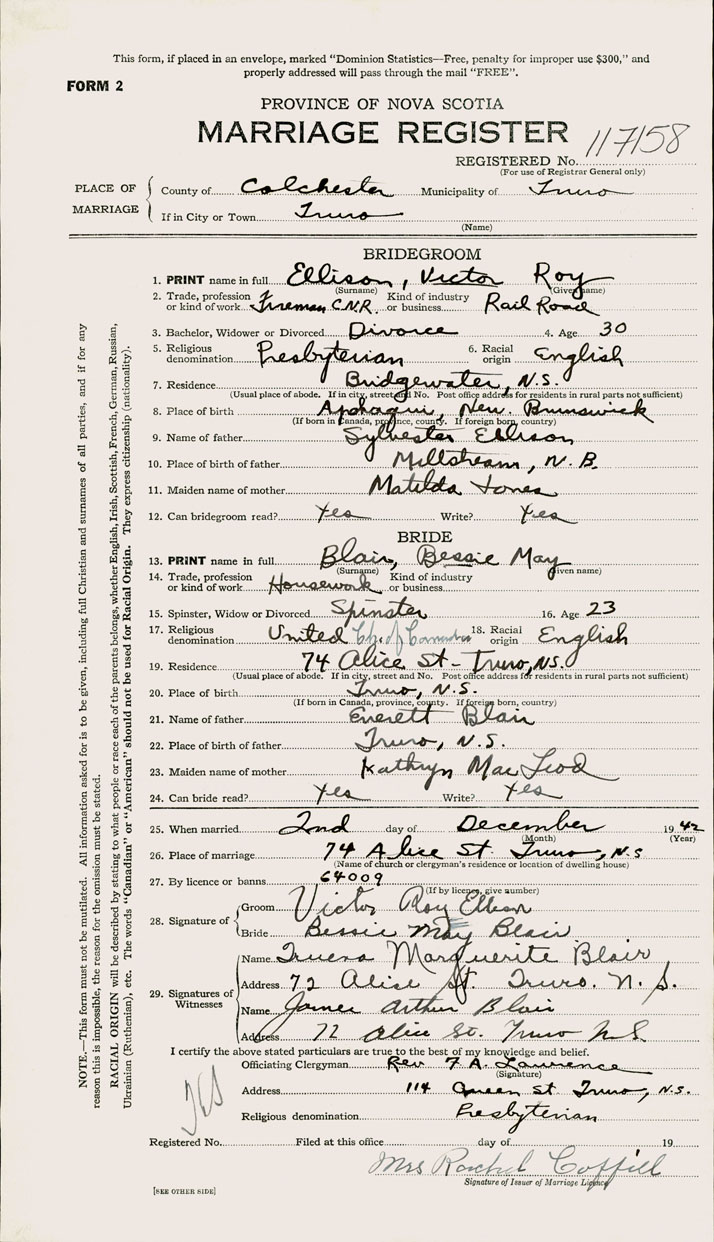 This form, if placed in an envelope, marked "Dominion Statistics—Free, penalty for improper use $300," and
properly addressed will pass through the mail "FREE".
FORM 2
PROVINCE OF NOVA SCOTIA
MARRIAGE REGISTER
REGISTERED No. 117158
(For use of Registrar General only)
PLACE OF MARRIAGE
County of Colchester Municipality of Truro
If in City or Town Truro
(Name)
BRIDEGROOM
1. PRINT name in full Ellison, Victor Roy
(Surname) (Given name)
2. Trade, profession or kind of work Fireman C.N.R. Kind of industry or business Rail Road
3. Bachelor, Widower or Divorced Divorce 4. Age 30
5. Religious denomination Presbyterian 6. Racial origin English
7. Residence Bridgewater, N.S.
(Usual place of abode. If in city, street and No. Post office address for residents in rural parts not sufficient)
8. Place of birth Apohaqui, New Brunswick
(If born in Canada, province, county. If foreign born, country)
9. Name of father Sylvester Ellison
10. Place of birth of father Millstream, N.B.
11. Maiden name of mother Matilda Jones
12. Can bridegroom read? Yes Write? Yes
BRIDE
13. PRINT name in full Blair, Bessie May
(Surname) (Given name)
14. Trade, profession or kind of work Housework Kind of industry or business
15. Spinster, Widow or Divorced Spinster 16. Age 23
17. Religious denomination United Ch. of 18. Racial origin English
19. Residence 74 Alice St - Truro, N.S.
(Usual place of abode. If in city, street and No. Post office address for residents in rural parts not sufficient)
20. Place of birth Truro, N.S.
(If born in Canada, province, county. If foreign born, country)
21. Name of father Everett Blair
22. Place of birth of father Truro, N.S.
23. Maiden name of mother Kathryn MacLeod
24. Can bride read? Yes Write? Yes
25. When married 2nd day of December 1942
(Month) (Year)
26. Place of marriage 74 Alice St. Truro, N.S
(Name of church or clergyman's residence or location of dwelling house)
27. By licence or banns 64009
(If by licence, give number)
28. Signature of
Groom Victor Roy Ellison
Bride Bessie May Blair
29. Signatures of Witnesses
Name Truena Marguerite Blair
Address 72 Alice St. Truro. N. S.
Name James Arthur Blair
Address 72 Alice St. Truro N S
I certify the above stated particulars are true to the best of my knowledge and belief.
Officiating Clergyman Rev. F. A. Lawrence
(Signature)
Address 114 Queen St Truro, N.S.
Religious denomination Presbyterian
Registered No. Filed at this office day of 19
Mrs Rachel Coffill
Signature of Issuer of Marriage Licence
[SEE OTHER SIDE]
NOTE.—This form must not be mutilated. All information asked for is to be given, including full Christian and surnames of all parties, and if for any
reason this is impossible, the reason for the omission must be stated.
RACIAL ORIGIN will be described by stating to what people or race each of the parents belongs, whether English, Irish, Scottish, French, German, Russian,
Ukrainian (Ruthenian), etc. The words "Canadian" or "American" should not be used for Racial Origin. They express citizenship (nationality).